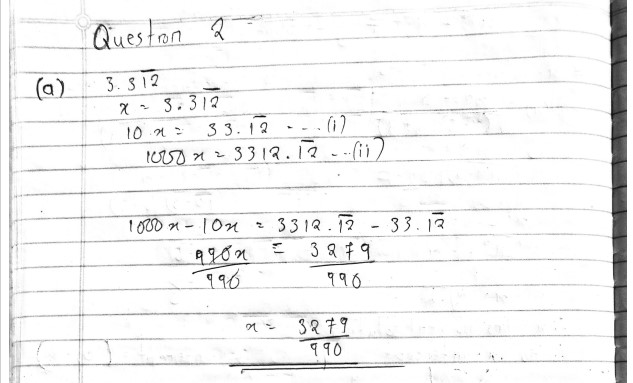 Question 2
(a) 3.3\overline{12}
x = 3.3\overline{12}
10x = 33.\overline{12} --- (i)
1000x = 3312.\overline{12} --- (ii)
1000x - 10x = 3312.\overline{12} - 33.\overline{12}
990x/990 = 3279/990
x = 3279/990